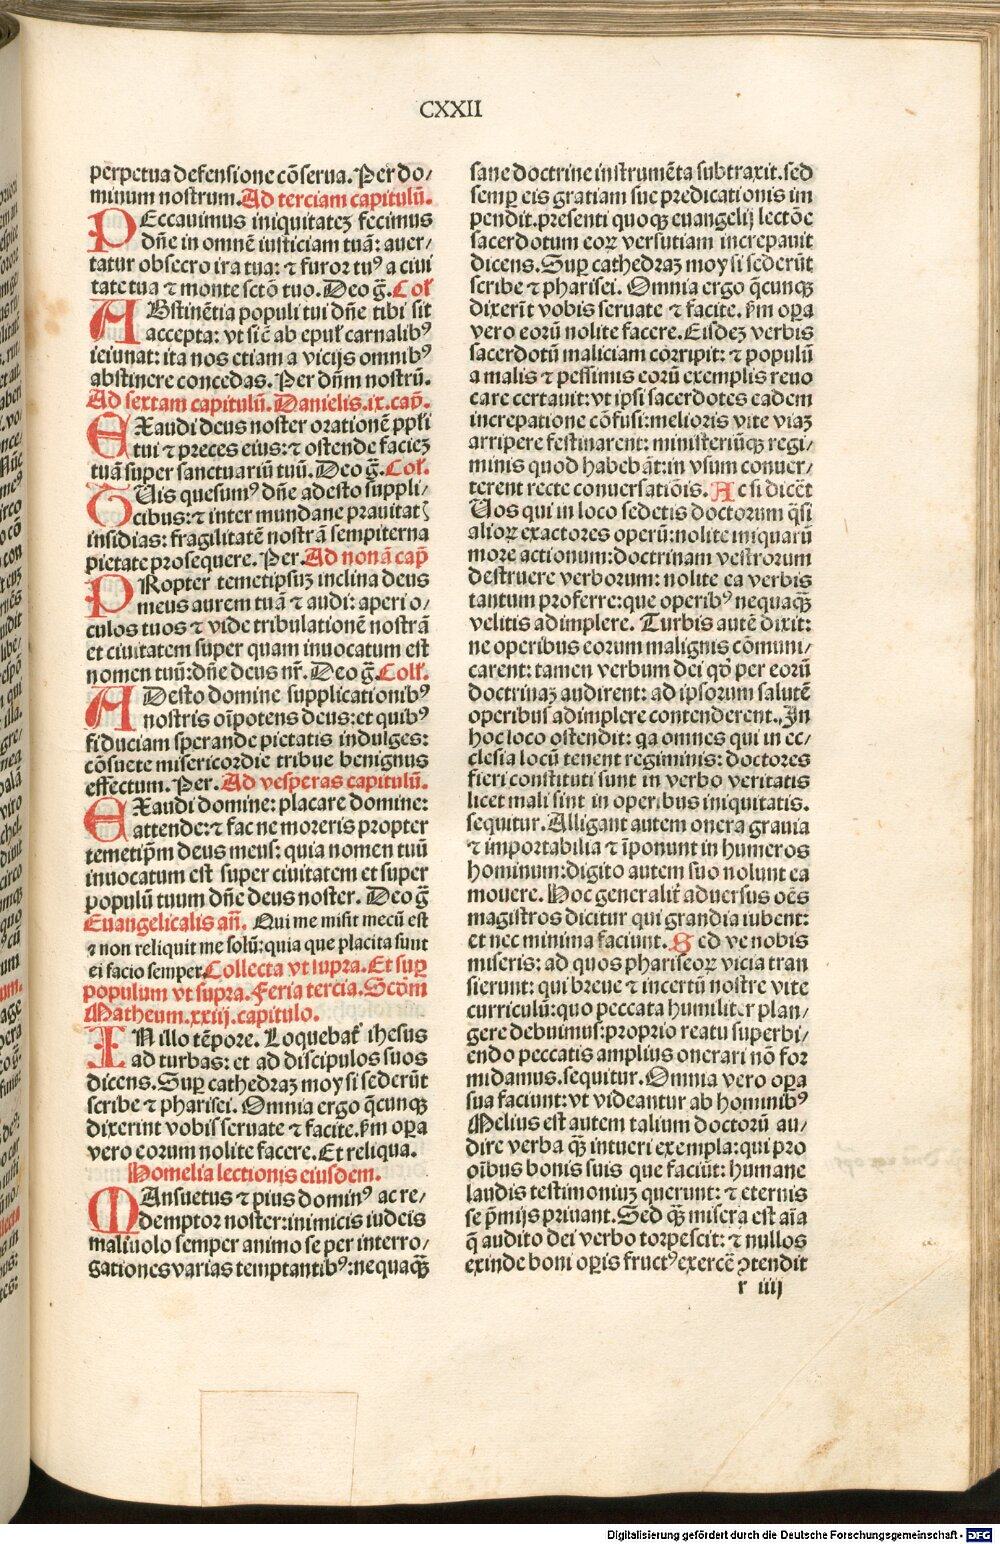 CXXII
perpetua defensione cōserua. Per do/
minum nostrum. Ad terciam capitulū.
PEccauimus iniquitateʒ fecimus
dn̄e in omnē iusticiam tuā: auer/
tatur obsecro ira tua: ⁊ furor tuꝰ a ciui
tate tua ⁊ monte sctō tuo. Deo g̃. Coł
ABstinētia populi tui dn̄e tibi sit
accepta: vt sić ab epuł carnalibꝰ
ieiunat: ita nos etiam a vicijs omnibꝰ
abstinere concedas. Per dn̄m nostrū.
Ad sextam capitulū. Danielis.ix.cap̄.
EXaudi deus noster orationē pp̄li
tui ⁊ preces eius: ⁊ ostende facieʒ
tuā super sanctuariū tuū. Deo g̃. Coł.
TUis quesumꝰ dn̄e adesto suppli/
cibus: ⁊ inter mundane prauitatꝭ
insidias: fragilitatē nostrā sempiterna
pietate prosequere. Per. Ad nonā cap̄
PRopter temetipsuʒ inclina deus
meus aurem tuā ⁊ audi: aperi o/
culos tuos ⁊ vide tribulationē nostrā
et ciuitatem super quam inuocatum est
nomen tuū: dn̄e deus nr̄. Deo g̃. Colł.
ADesto domine supplicationibꝰ
nostris oīpotens deus: et quibꝰ
fiduciam sperande pietatis indulges:
cōsuete misericordie tribue benignus
effectum. Per. Ad vesperas capitulū.
EXaudi domine: placare domine:
attende: ⁊ fac ne moreris propter
temetip̄m deus meus: quia nomen tuū
inuocatum est super ciuitatem et super
populū tuum dn̄e deus noster. Deo g̃
Euangelicalis an̄. Qui me misit mecū est
⁊ non reliquit me solū: quia que placita sunt
ei facio semper. Collecta vt supra. Et suꝑ
populum vt supra. Feria tercia. Scd̄m
Matheum.xxiij.capitulo.
IN illo tēpore. Loquebat᷑ ihesus
ad turbas: et ad discipulos suos
dicens. Suꝑ cathedraʒ moysi sederūt
scribe ⁊ pharisei. Omnia ergo q̄cunqꝫ
dixerint vobis seruate ⁊ facite. ẜm oꝑa
vero eorum nolite facere. Et reliqua.
Homelia lectionis eiusdem.
MAnsuetus ⁊ pius dominꝰ ac re/
demptor noster: inimicis iudeis
maliuolo semper animo se per interro/
gationes varias temptantibꝰ: nequaqꝫ̄
sane doctrine instrumēta subtraxit. sed
semꝑ eis gratiam sue predicationis im
pendit. presenti quoqꝫ euangelij lectōe
sacerdotum eoꝝ versutiam increpauit
dicens. Suꝑ cathedraʒ moysi sederūt
scribe ⁊ pharisei. Omnia ergo q̄cunqꝫ
dixerīt vobis seruate ⁊ facite. ẜm oꝑa
vero eorū nolite facere. Eisdeʒ verbis
sacerdotū maliciam corripit: ⁊ populū
a malis ⁊ pessimis eorū exemplis reuo
care certauit: vt ipsi sacerdotes eadem
increpatione cōfusi: melioris vite viaʒ
arripere festinarent: ministeriūqꝫ regi/
minis quod habebāt: in vsum conuer/
terent recte conuersatiōis. Ac si dicēt
Uos qui in loco sedetis doctorum q̄si
alioꝝ exactores operū: nolite iniquarū
more actionum: doctrinam vestrorum
destruere verborum: nolite ea verbis
tantum proferre: que operibꝰ nequaqꝫ̄
velitis adimplere. Turbis autē dixit:
ne operibus eorum malignis cōmuni/
carent: tamen verbum dei qd̄ per eorū
doctrinaʒ audirent: ad ipsorum salutē
operibus adimplere contenderent. In
hoc loco ostendit: qa omnes qui in ec/
clesia locū tenent regiminis: doctores
fieri constituti sunt in verbo veritatis
licet mali sint in operibus iniquitatis.
sequitur. Alligant autem onera grauia
⁊ importabilia ⁊ īponunt in humeros
hominum: digito autem suo nolunt ea
mouere. Hoc generalit᷑ aduersus oēs
magistros dicitur qui grandia iubent:
et nec minima faciunt. Sed ve nobis
miseris: ad quos phariseoꝝ vicia tran
sierunt: qui breue ⁊ incertū nostre vite
curriculū: quo peccata humiliter plan/
gere debuimus: proprio reatu superbi/
endo peccatis amplius onerari nō for
midamus. sequitur. Omnia vero oꝑa
sua faciunt: vt videantur ab hominibꝰ
Melius est autem talium doctorū au/
dire verba qꝫ̄ intueri exempla: qui pro
oībus bonis suis que faciūt: humane
laudis testimoniuʒ querunt: ⁊ eternis
se p̄mijs priuant. Sed qꝫ̄ misera est aīa
q̄ audito dei verbo torpescit: ⁊ nullos
exinde boni oꝑis fructꝰ exercē ꝯtendit
r iiij
Digitalisierung gefördert durch die Deutsche Forschungsgemeinschaft - DFG